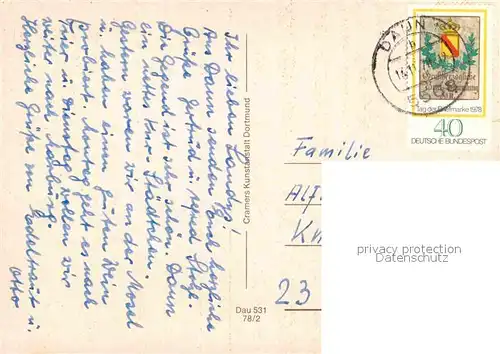 Ihr lieben Landys!
Aus Daun senden Euch herzliche
Grüße Gertrud u. Alfred Stolz.
Die Gegend ist sehr schön. Daun
ein nettes Kur-Städtchen.
Gestern waren wir an der Mosel
u. haben einen guten Wein
probiert. Montag geht es nach
Trier u. Dienstag wollen wir
weiter nach
Herzliche Grüße von Edeltraut u.
Otto
Cramers Kunstanstalt Dortmund
Dau 531
78/2
DAUN
Tag der Briefmarke 1978
40
DEUTSCHE BUNDESPOST
Familie
Alf.
Kn
23
privacy protection
Datenschutz